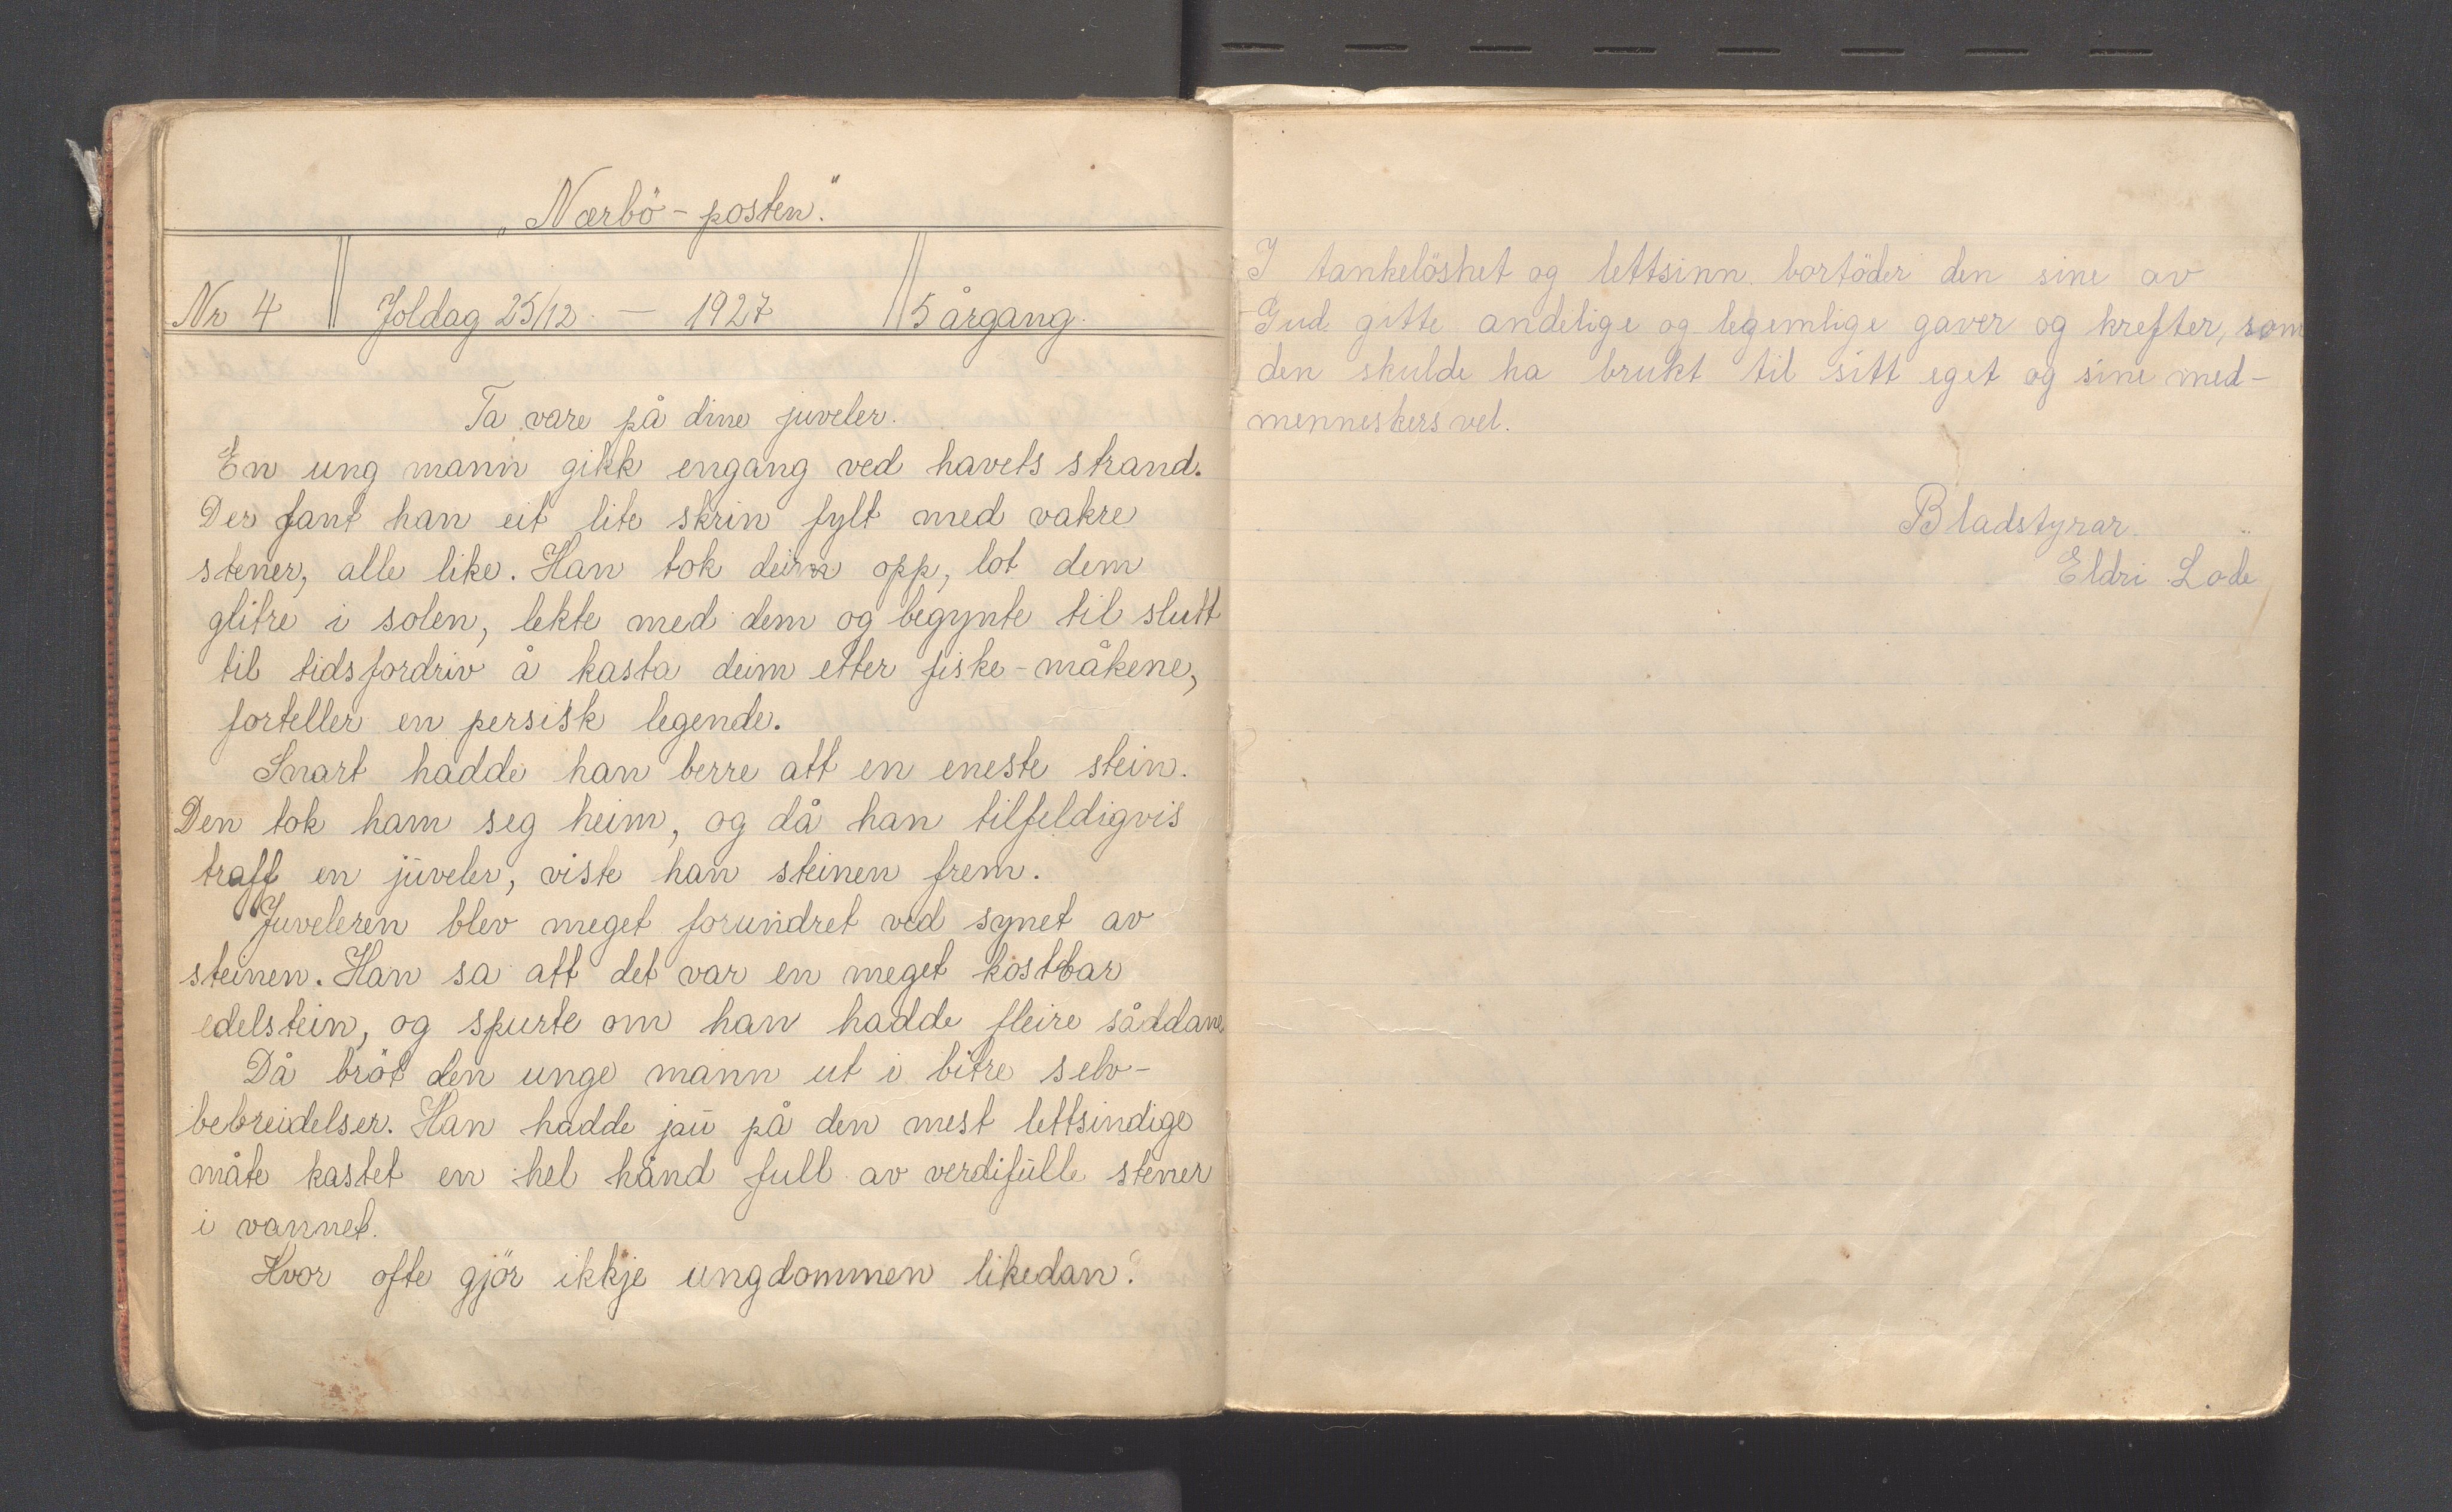 „Nærbö-posten."
Nr 4 Joldag 25/12 — 1927 5 årgang.
Ta vare på dine juveler.
En ung mann gikk engang ved havets strand.
Der fant han eit lite skrin fylt med vakre
stener, alle like. Han tok deim opp, lot dem
glitre i solen, lekte med dem og begynte til slutt
til tidsfordriv å kasta deim etter fiske-måkene,
forteller en persisk legende.
Snart hadde han berre att en eneste stein.
Den tok ham seg heim, og då han tilfeldigvis
traff en juveler, viste han steinen frem.
Juveleren blev meget forundret ved synet av
steinen. Han sa att det var en meget kostbar
edelstein, og spurte om han hadde fleire såddane.
Då bröt den unge mann ut i bitre selv-
bebreidelser. Han hadde jau på den mest lettsindige
måte kastet en hel hånd full av verdifulle stener
i vannet.
Hvor ofte gjör ikkje ungdommen likedan?
I tankelöshet og lettsinn bortöder den sine av
Gud gitte andelige og legemlige gaver og krefter, som
den skulde ha brukt til sitt eget og sine med-
menneskers vel.
Bladstyrar
Eldri Lode